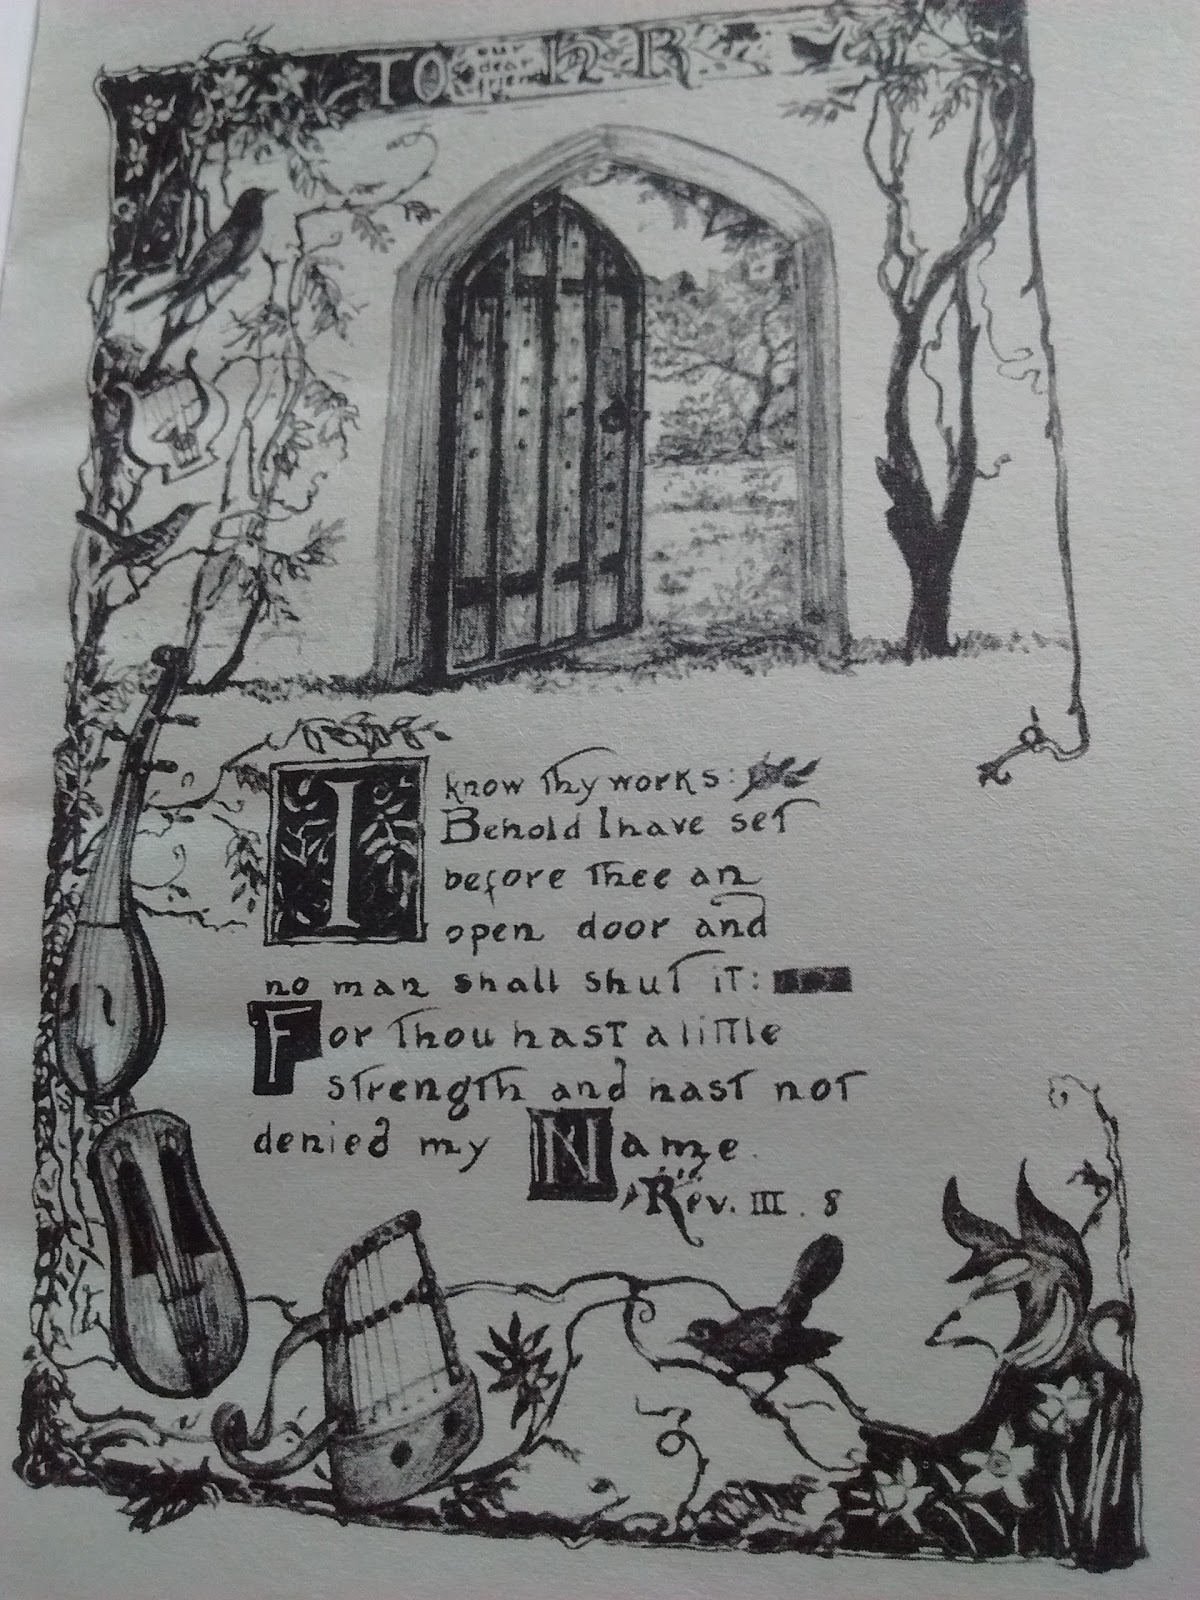 TO our dear friend h R
I know Thy works:
Behold I have set
before Thee an
open door and
no man shall shut it:
For Thou hast a little
strength and hast not
denied my Name.
Rev. III. 8